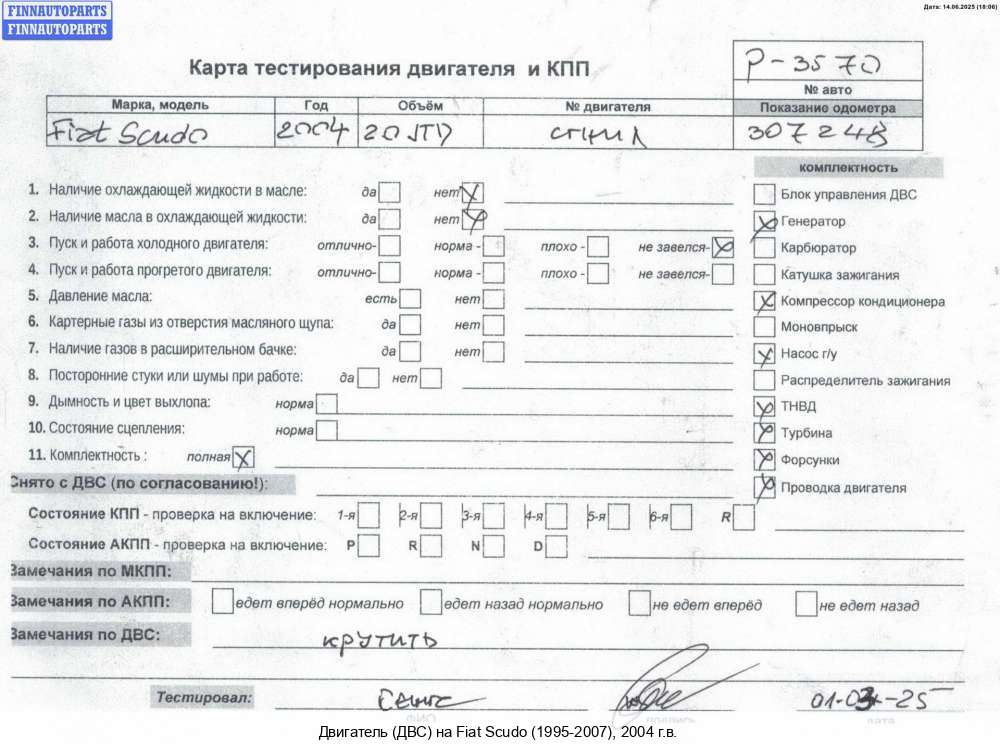 FINNAUTOPARTS
FINNAUTOPARTS
Дата: 14.06.2025 (18:06)
Карта тестирования двигателя и КПП
P-3570
№ авто
Марка, модель Год Объём № двигателя Показание одометра
Fiat Scudo 2004 20 JTD сгнил 307248
комплектность
1. Наличие охлаждающей жидкости в масле: да нет
Блок управления ДВС
2. Наличие масла в охлаждающей жидкости: да нет
Генератор
3. Пуск и работа холодного двигателя: отлично- норма - плохо - не завелся-
Карбюратор
4. Пуск и работа прогретого двигателя: отлично- норма - плохо - не завелся-
Катушка зажигания
5. Давление масла: есть нет
Компрессор кондиционера
6. Картерные газы из отверстия масляного щупа: да нет
Моновпрыск
7. Наличие газов в расширительном бачке: да нет
Насос г/у
8. Посторонние стуки или шумы при работе: да нет
Распределитель зажигания
9. Дымность и цвет выхлопа: норма
ТНВД
10. Состояние сцепления: норма
Турбина
11. Комплектность : полная
Форсунки
Снято с ДВС (по согласованию!):
Проводка двигателя
Состояние КПП - проверка на включение: 1-я 2-я 3-я 4-я 5-я 6-я R
Состояние АКПП - проверка на включение: P R N D
Замечания по МКПП:
Замечания по АКПП: едет вперёд нормально едет назад нормально не едет вперёд не едет назад
Замечания по ДВС: крутить
Тестировал: 01-03-25
ФИО подпись дата
Двигатель (ДВС) на Fiat Scudo (1995-2007), 2004 г.в.